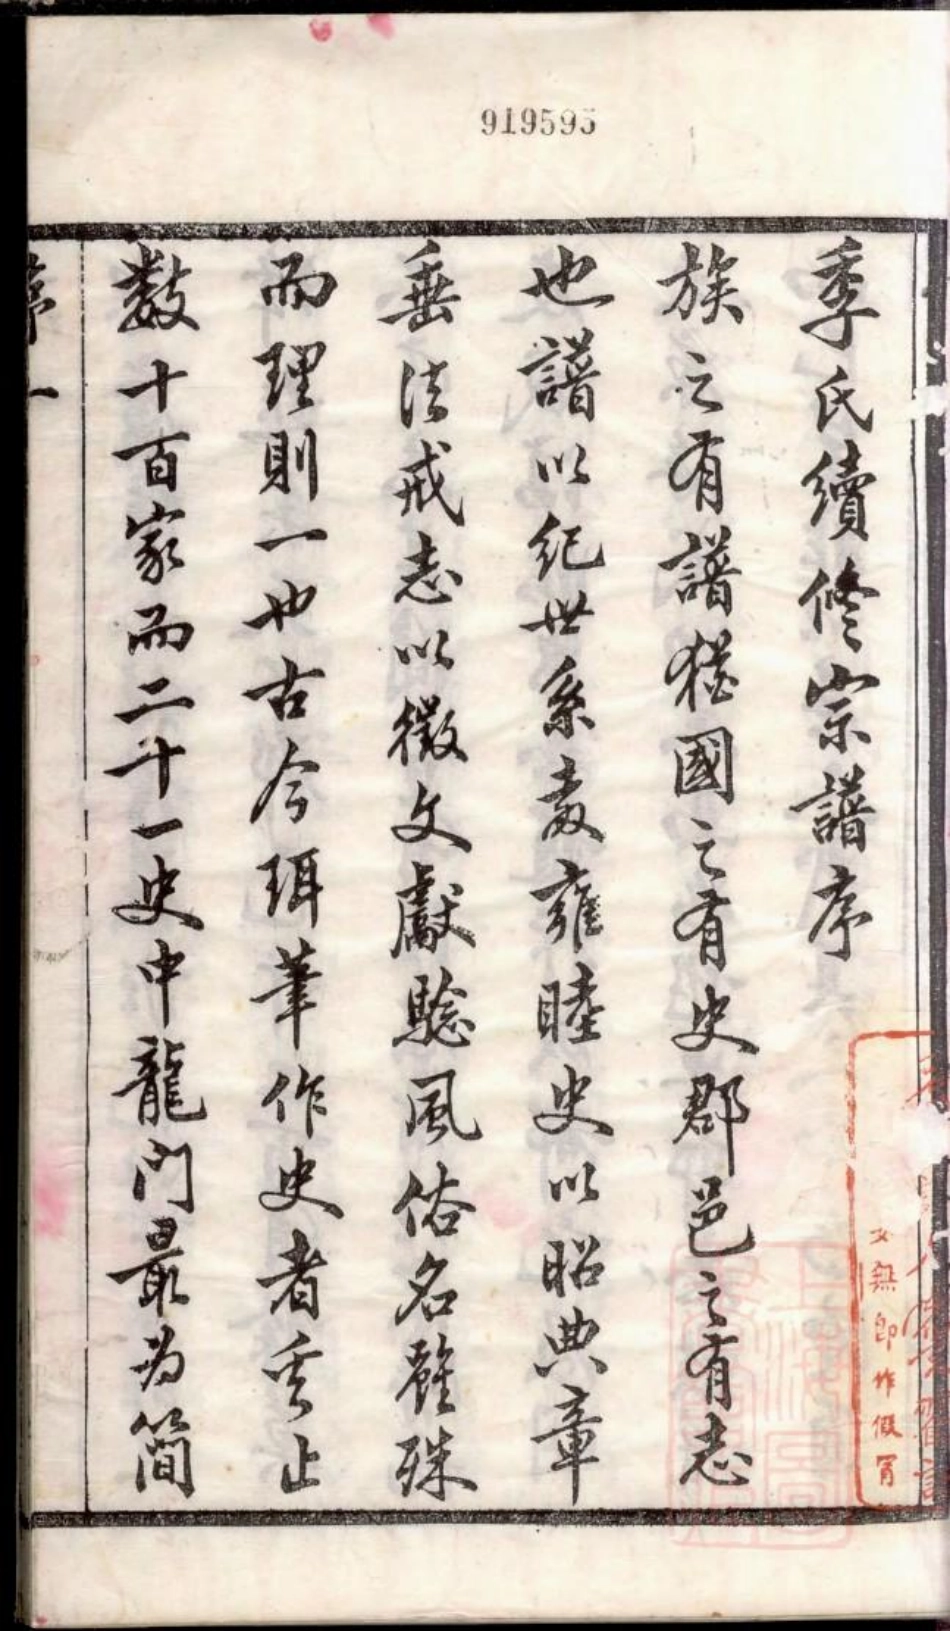 919595
季氏續修宗譜序
族之有譜猶國之有史郡邑之有志
也譜以紀世系敦雍睦史以昭典章
垂法戒志以徵文獻驗風俗名雖殊
而理則一也古今珥筆作史者奚止
數十百家而二十一史中龍門最為簡
序 一
無即作假冒